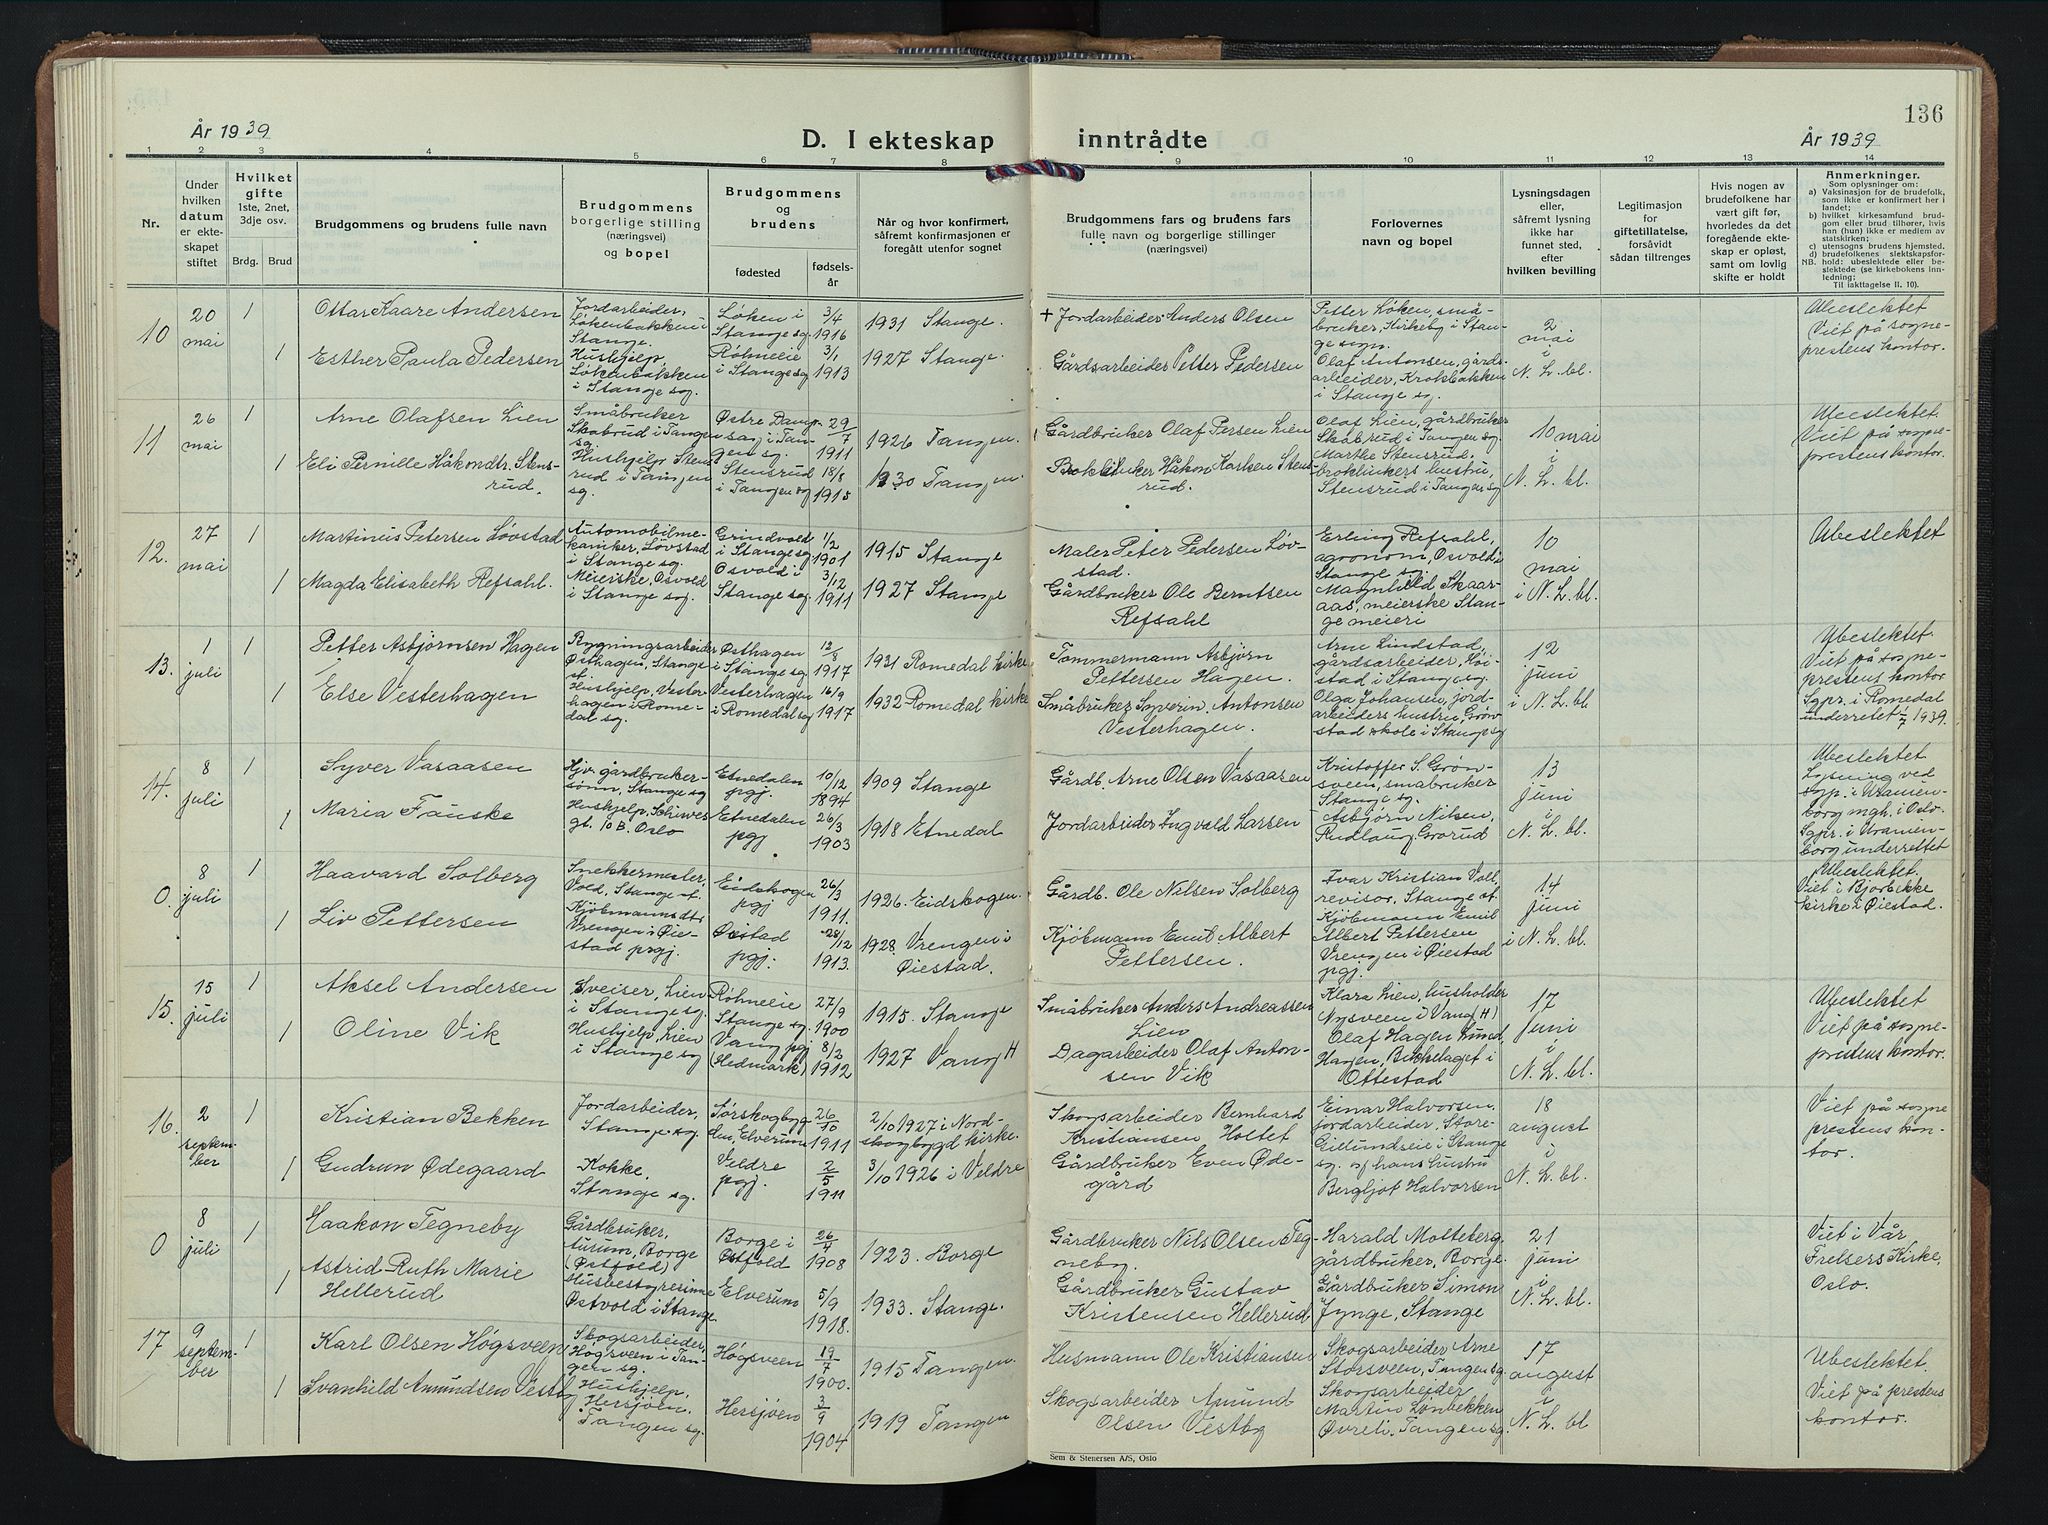 136
År 1939
D. I ekteskap inntrådte
År 1939
1 2 3 4 5 6 7 8 9 10 11 12 13 14
Nr.
Under hvilken datum er ekteskapet stiftet
Hvilket gifte 1ste, 2net, 3dje osv.
Brdg. Brud
Brudgommens og brudens fulle navn
Brudgommens borgerlige stilling (næringsvei) og bopel
Brudgommens og brudens
fødested
fødselsår
Når og hvor konfirmert, såfremt konfirmasjonen er foregått utenfor sognet
Brudgommens fars og brudens fars fulle navn og borgerlige stillinger (næringsvei)
Forlovernes navn og bopel
Lysningsdagen eller, såfremt lysning ikke har funnet sted, efter hvilken bevilling
Legitimasjon for giftetillatelse, forsåvidt sådan tiltrenges
Hvis nogen av brudefolkene har vært gift før, hvorledes da det foregående ekteskap er opløst, samt om lovlig skifte er holdt
Anmerkninger.
Som oplysninger om:
a) Vaksinasjon for de brudefolk, som ikke er konfirmert her i landet;
b) hvilket kirkesamfund brudgom eller brud tilhører, hvis han (hun) ikke er medlem av statskirken;
c) utensogns brudens hjemsted.
d) brudefolkenes slektskapsforhold: ubeslektede eller beslektede (se kirkebokens innledning;
Til iakttagelse II. 10).
10 20 mai 1 Ottar Kaare Andersen Jordarbeider, Løkenbakken i Stange. Løken i Stange sg. 3/4 1916 1931 Stange. + Jordarbeider Anders Olsen Petter Løken, småbruker, Kirkeby i Stange sogn. 2 mai i N. L. bl. Ubeslektet Viet på sogneprestens kontor.
1 Esther Paula Pedersen Hushjelp, Løkenbakken i Stange sg. Røhneeie i Stange sg 3/1 1913 1927 Stange. Gårdsarbeider Petter Pedersen Olaf Antonsen, gårdsarbeider, Krokbakken i Stange sg.
11 26 mai 1 Arne Olafsen Lien Småbruker Skabrud i Tangen sg. Østre Dampsag i Tangen sg. 29/7 1911 1926 Tangen. Gårdbruker Olaf Persen Lien Olaf Lien, gårdbruker Skabrud i Tangen sg. 10 mai i N. L. bl. Ubeslektet. Viet på sogneprestens kontor.
1 Eli Pernille Håkondtr. Stensrud. Hushjelp Stensrud i Tangen sg. Stensrud i Tangen sg 18/8 1915 1930 Tangen. Brokbinker Håkon Karlsen Stensrud. Marthe Stensrud, hustru, Stensrud i Tangen sg
12. 27 mai 1 Martinus Petersen Løvstad Automobilmekaniker, Løvstad i Stange sg. Grindvold i Stange sg 1/2 1901 1915 Stange Maler Peter Pedersen Løvstad. Erling Refsahl, agronom, Osvold i Stange sg. 10 mai i N. L. bl. Ubeslektet
1 Magda Elisabeth Refsahl. Meierske, Osvold i Stange sg. Osvold i Stange sg. 3/12 1911 1927 Stange Gårdbruker Ole Berntsen Refsahl Magnhild Skaaraas, meierske Stange meieri
13. 1 juli 1 Petter Asbjørnsen Hagen Bygningsarbeider Østhagen, Stange st. Østhagen i Stange sg 12/8 1917 1931 Romedal kirke Tømmermann Asbjørn Pettersen Hagen. Arne Lindstad, gårdsarbeider, Høistad i Stange sg. 12 juni i N. L. bl Ubeslektet. Viet på sogneprestens kontor Sgpr. i Romedal underrettet 1/7 1939.
1 Else Vesterhagen Hushjelp, Vesterhagen i Romedal sg. Vesterhagen i Romedal sg 16/9 1917 1932 Romedal kirke Småbruker Syverin Antonsen Vesterhagen. Olga Johansen, jordarbeiders hustru, Grønstad skole i Stange sg
14. 8 juli 1 Syver Vasaasen Hjv. gårdbrukersønn, Stange sg Etnedalen pgj. 10/12 1894 1909 Stange Gårdb. Arne Olsen Vasaasen Kristoffer S. Grønsveen, småbruker Stange sg. 13 juni i N. L. bl. Ubeslektet Lysning ved sgpr. i Uranienborg mgh. i Oslo. Sgpr. i Uranienborg underrettet
1 Maria Fauske Hushjelp, Schives gt. 10 B. Oslo Etnedalen pgj 26/3 1903 1918 Etnedal Jordarbeider Ingvald Larsen Asbjørn Nilsen, Rudlaug, Grorud
0. 8 juli 1 Haavard Solberg Snekkermester, Vold, Stange st. Eidskogen pgj 26/3 1911. 1926. Eidskogen. Gårdb. Ole Nilsen Solberg Ivar Kristian Voll revisor, Stange st. 14 juni i N. L. bl. Ubeslektet. Viet i Bjorbekke kirke i Øiestad.
1 Liv Pettersen Kjøbmannsdtr Vrengen i Øiestad prgj. Øistad pgj. 28/12 1913. 1928 Vrengen i Øiestad. Kjøbmann Emil Albert Pettersen. Kjøbmann Emil Albert Pettersen Vrengen i Øiestad pgj.
15. 15 juli 1 Aksel Andersen Sveiser, Lien i Stange sg. Røhneeie Stange sg. 27/9 1900 1915. Stange Småbruker Anders Andreassen Lien Klara Lien, husholder Nysveen i Vang (H) 17 juni i N. L. bl. Ubeslektet Viet på sogneprestens kontor.
1 Oline Vik Hushjelp, Lien i Stange sg Vang pgj (Hedmark) 8/2 1912 1927 Vang H Dagarbeider Olaf Antonsen Vik Olaf Hagen Lund, Hagen, Bekkelaget i Ottestad
16. 2 september 1 Kristian Bekken Jordarbeider, Stange sg. Sørskogbygden, Elverum 26/10 1911 2/10 1927 i Nordskogbygd kirke. Skogsarbeider Bernhard Kristiansen Holtet Einar Halvorsen, jordarbeider, Store-Gillundseie i Stange sg. 18 august i N. L. bl. Viet på sogneprestens kontor.
1 Gudrun Ødegaard Kokke, Stange sg. Veldre pgj. 2/5 1911 3/10 1926 i Veldre Gårdbruker Even Ødegård og hans hustru Bergljot Halvorsen
0 8 juli 1 Haakon Tegneby Gårdbruker, Borge (Østfold) Borge i Østfold 26/4 1908 1923. Borge Gårdbruker Nils Olsen Tegneby. Harald Molteberg gårdbruker, Borge. 21 juni i N. L. bl. Viet i Vår Frelsers Kirke, Oslo.
1 Astrid Ruth Marie Hellerud Husbestyrerinne Østvold i Stange Elverum 5/9 1918. 1933. Stange. Gårdbruker Gustav Kristensen Hellerud Gårdbruker Simon Jynge, Stange
17 9 september 1 Karl Olsen Høgsveen Skogsarbeider, Høgsveen i Tangen sg. Høgsveen 19/7 1900. 1915 Tangen. Husmann Ole Kristiansen Skogsarbeider Arne Storsveen, Tangen sg. 17 august i N. L. bl Ubeslektet. Viet på prestens kontor.
1 Svanhild Amundsen Vestby Hushjelp, Hersjøen, Tangen sg. Hersjøen 3/9 1904 1919 Tangen Skogsarbeider Amund Olsen Vestby Skogsarbeider Martin Lønbekken Øvreli, Tangen sg.
Sem & Stenersen A/S, Oslo